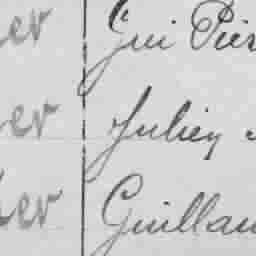 er Gui Pier
er Julien
er Guillau